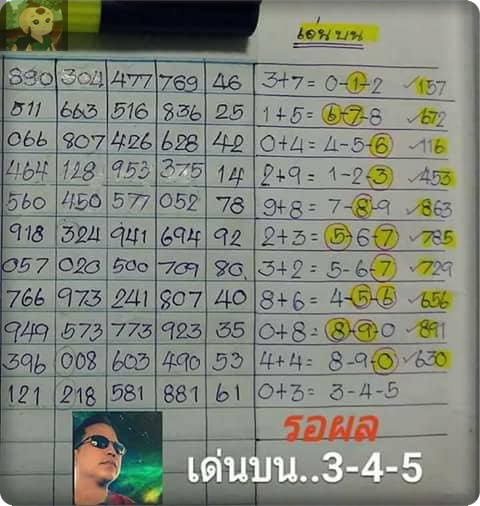 เด่นบน
890 304 477 769 46 3+7= 0-1-2 ✓157
511 663 516 836 25 1+5= 6-7-8 ✓672
066 807 426 628 42 0+4= 4-5-6 ✓116
464 128 953 375 14 2+9= 1-2-3 ✓453
560 450 577 052 78 9+8= 7-8-9 ✓863
918 324 941 694 92 2+3= 5-6-7 ✓785
057 020 500 709 80 3+2= 5-6-7 ✓729
766 973 241 807 40 8+6= 4-5-6 ✓656
949 573 773 923 35 0+8= 8-9-0 ✓891
396 008 603 490 53 4+4= 8-9-0 ✓630
121 218 581 881 61 0+3= 3-4-5
รอผล
เด่นบน..3-4-5